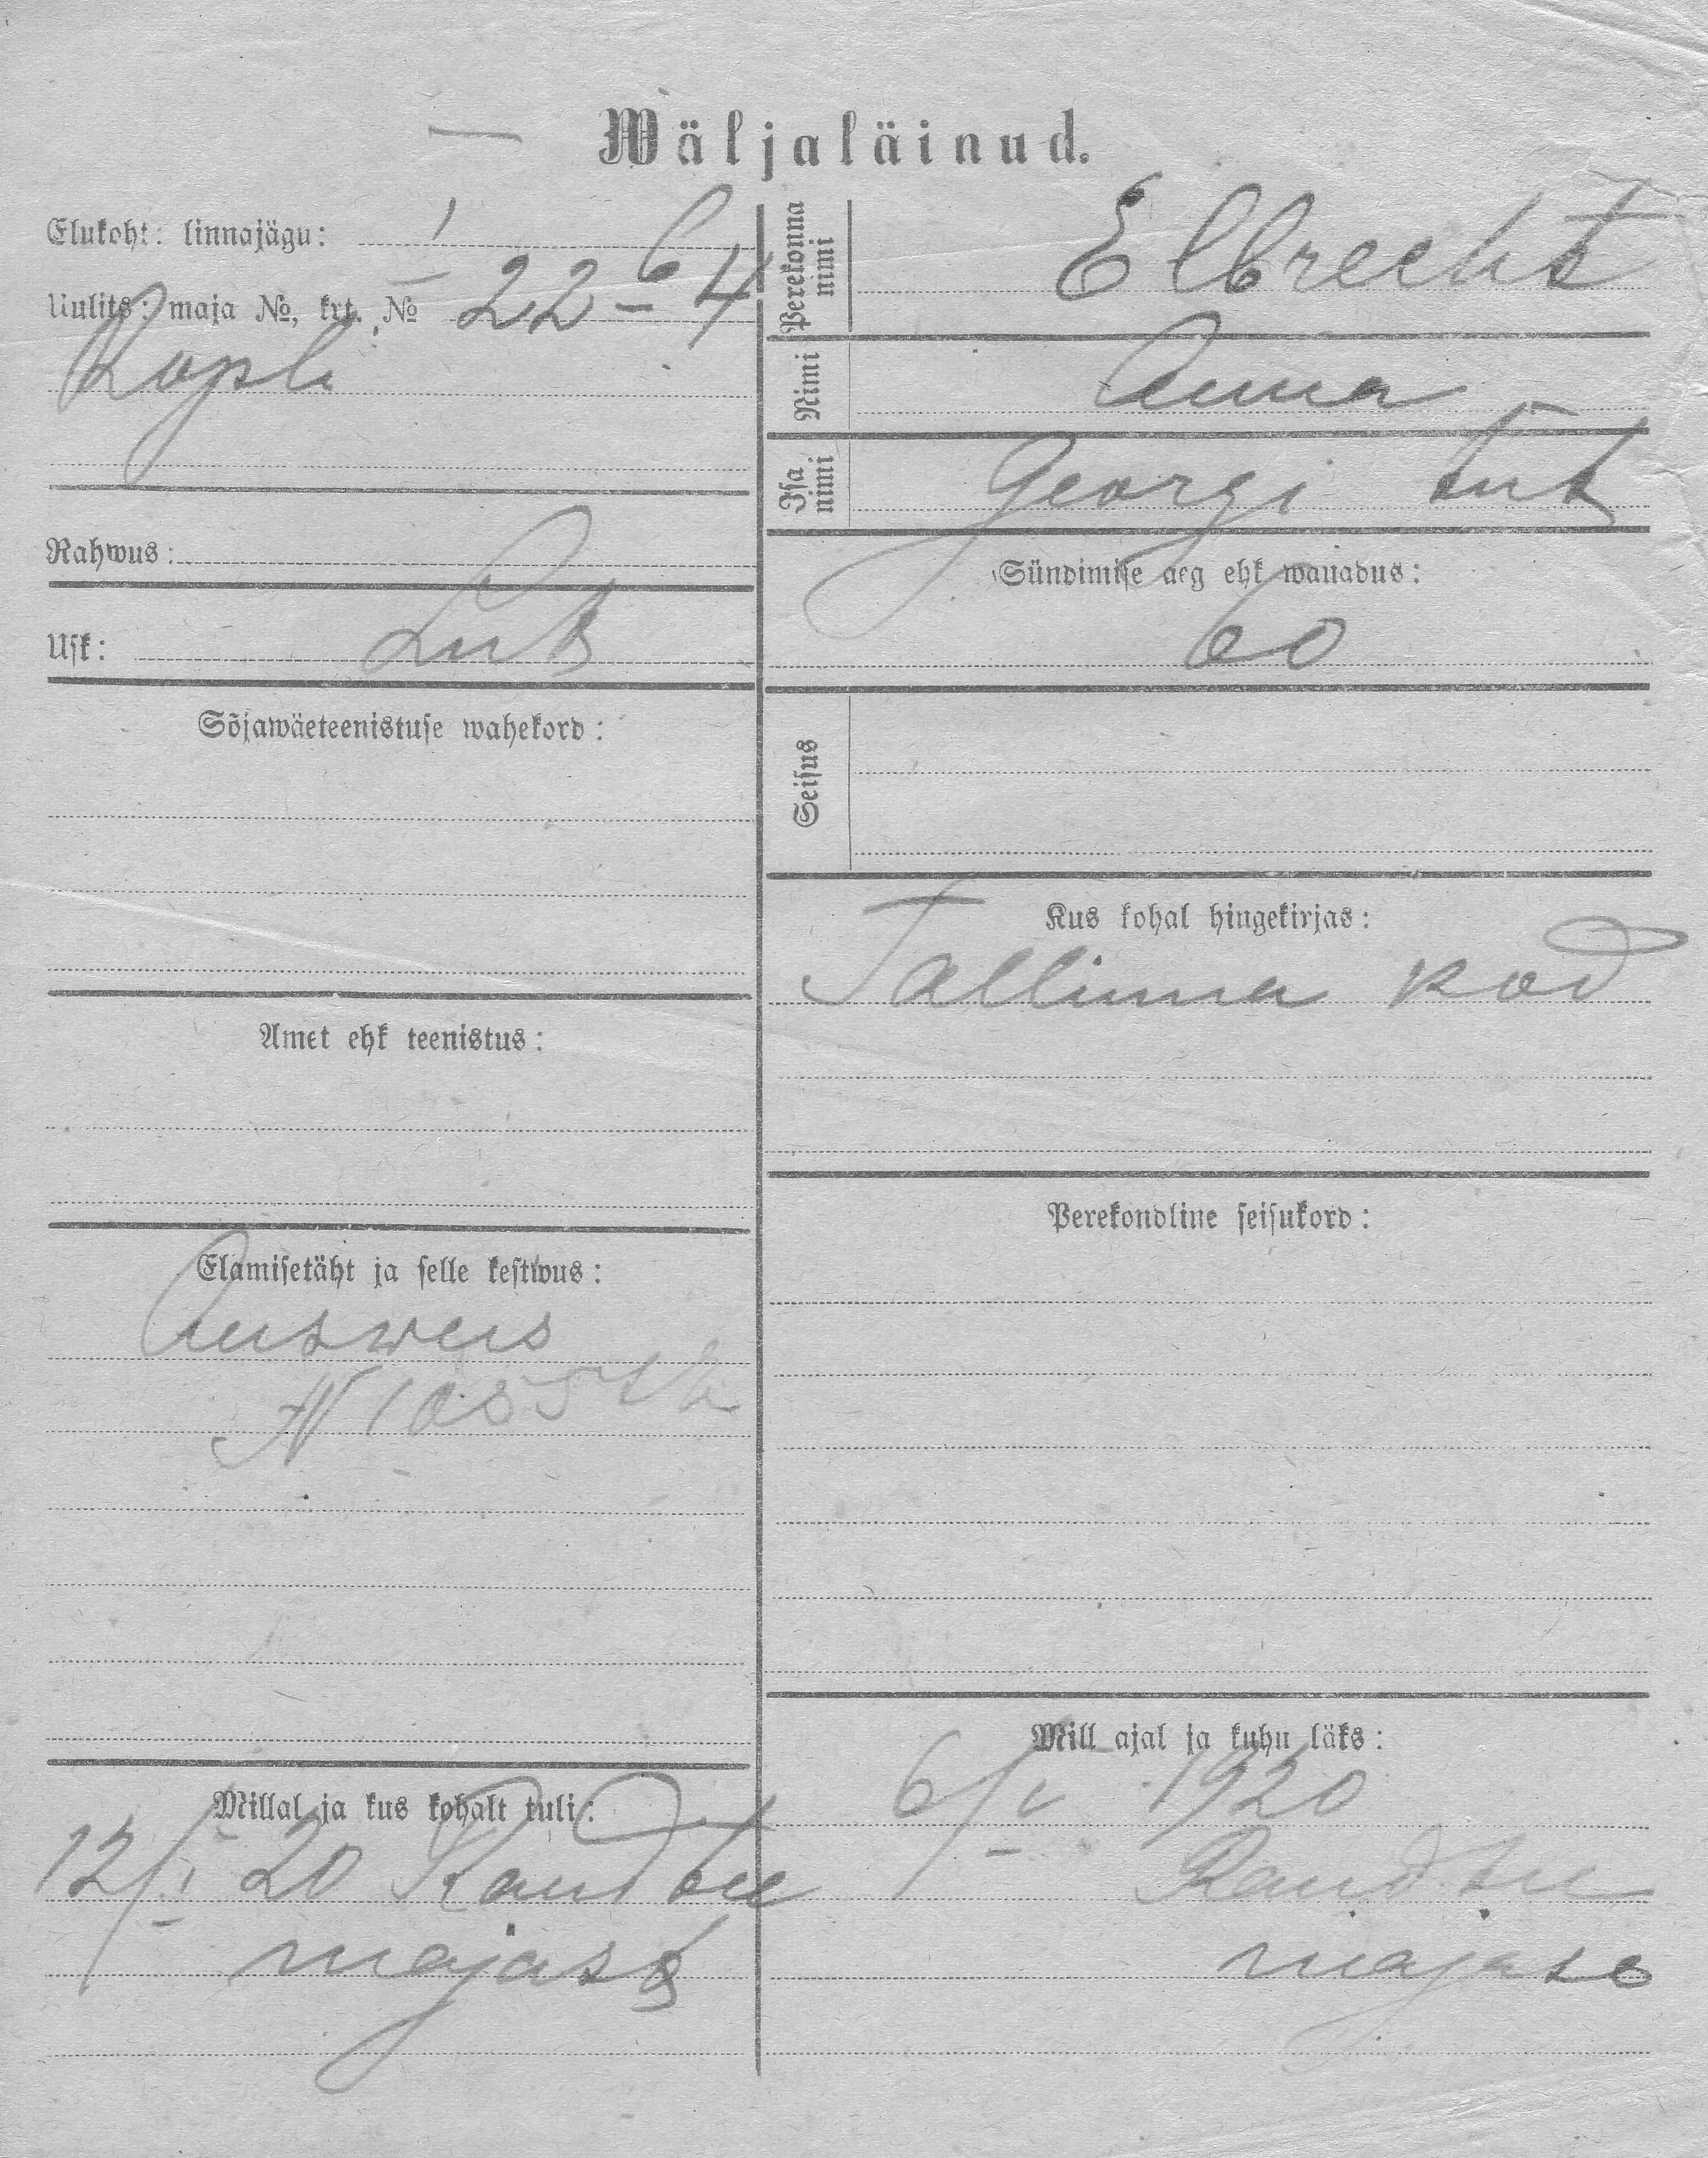 Wäljaläinud.
Elukoht: linnajägu: I
Uulits: maja №, krt. № 22-64
Kopli
Rahwus:
Usk: Lut
Sõjawäeteenistuse wahekord:
Amet ehk teenistus:
Elamisetäht ja selle kestwus:
Ausweis
N
Millal ja kus kohalt tuli:
12/I 20 Raudtee
majast
Perekonna nimi Elbrecht
Nimi Anna
Isa nimi Georgi tüt
Sündimise aeg ehk wanadus:
60
Seisus
Kus kohal hingekirjas:
Tallinna kod
Perekondline seisukord:
Mill ajal ja kuhu läks:
1920
Raudtee
majase